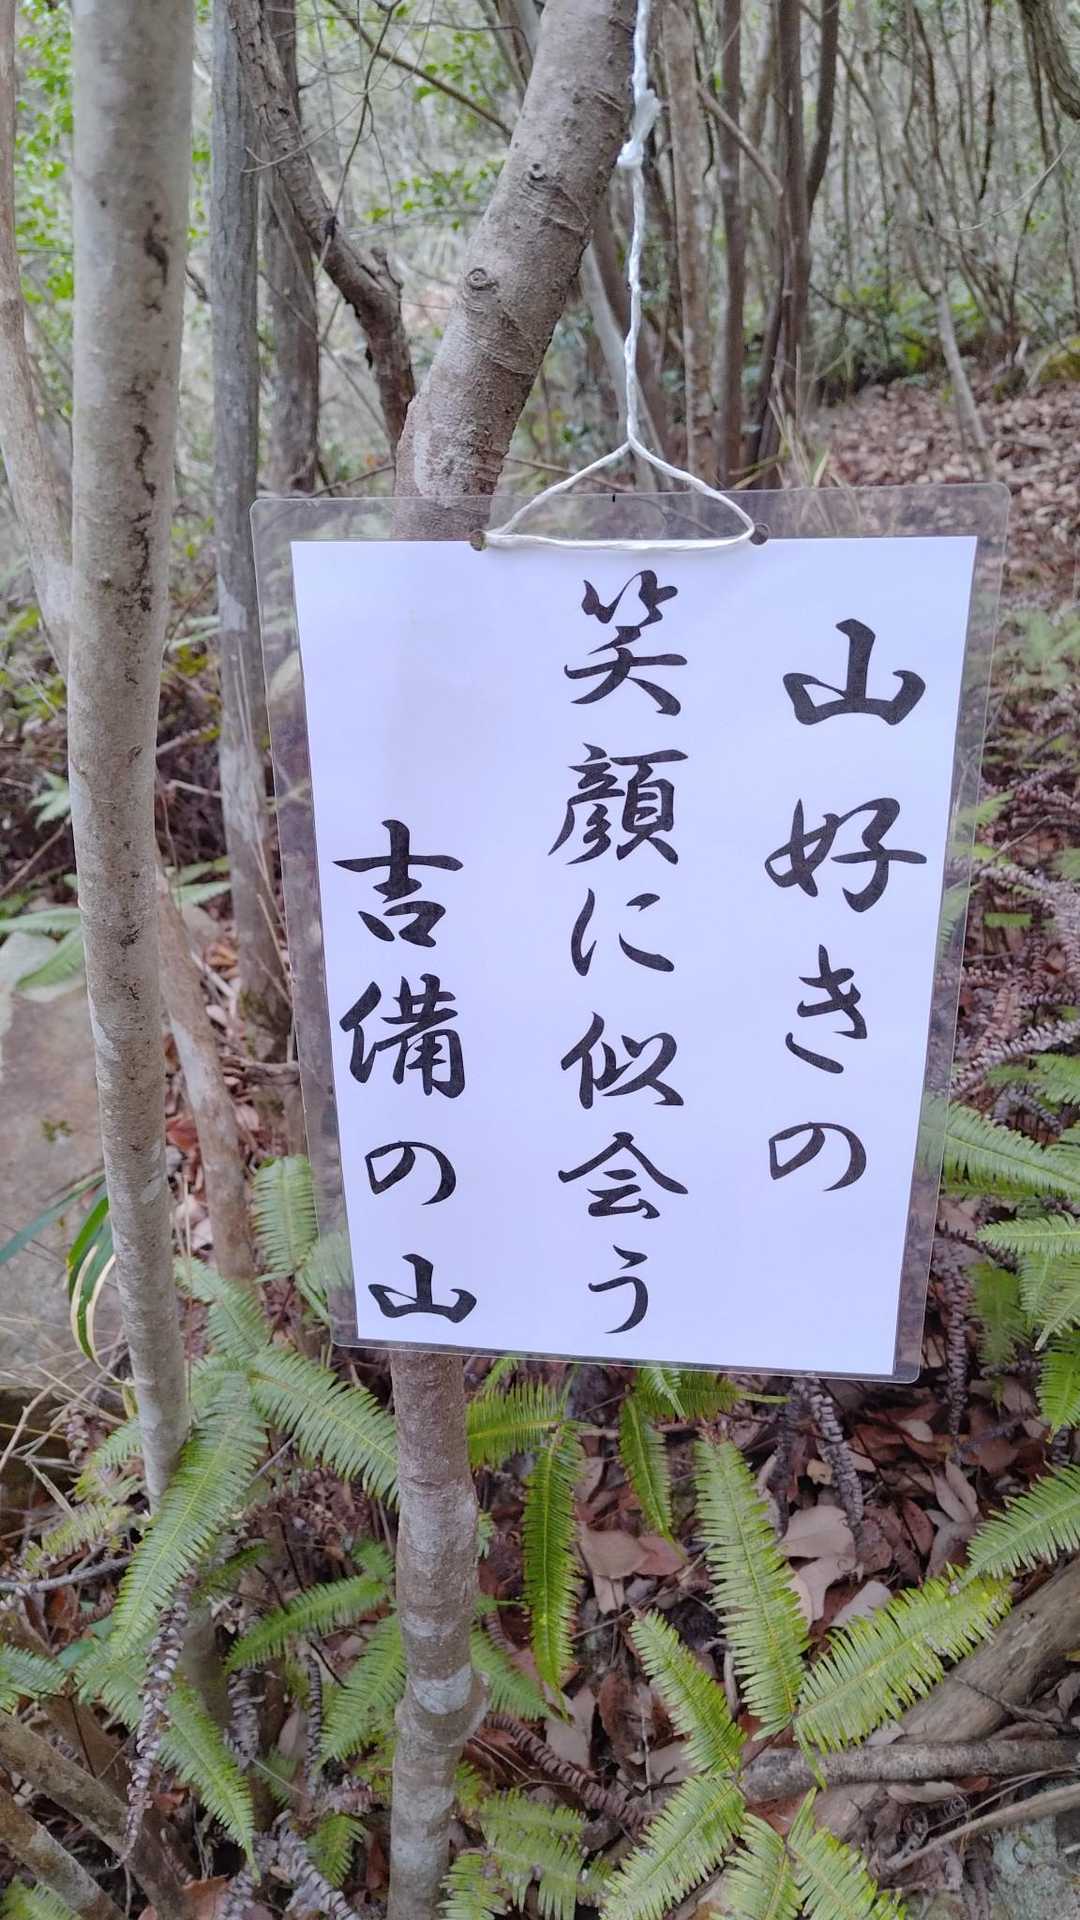 山好きの
笑顔に似会う
吉備の山